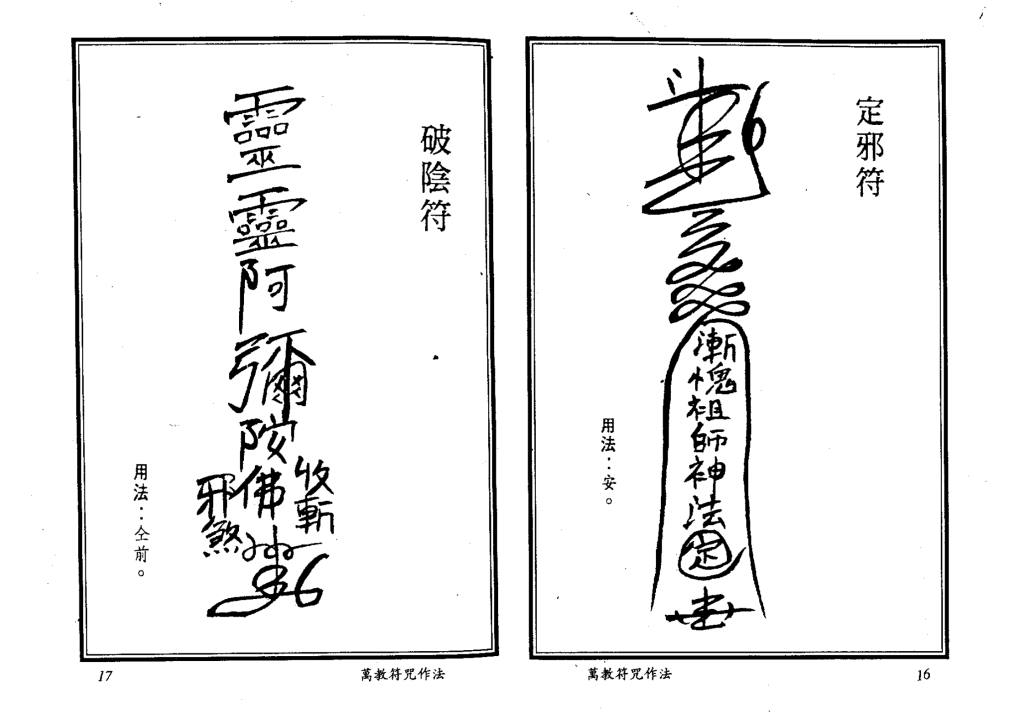 定邪符
漸愧祖師神法定
用法：安。
萬教符咒作法
16
破陰符
靈靈阿彌陀佛
收斬
邪煞
用法：仝前。
萬教符咒作法
17